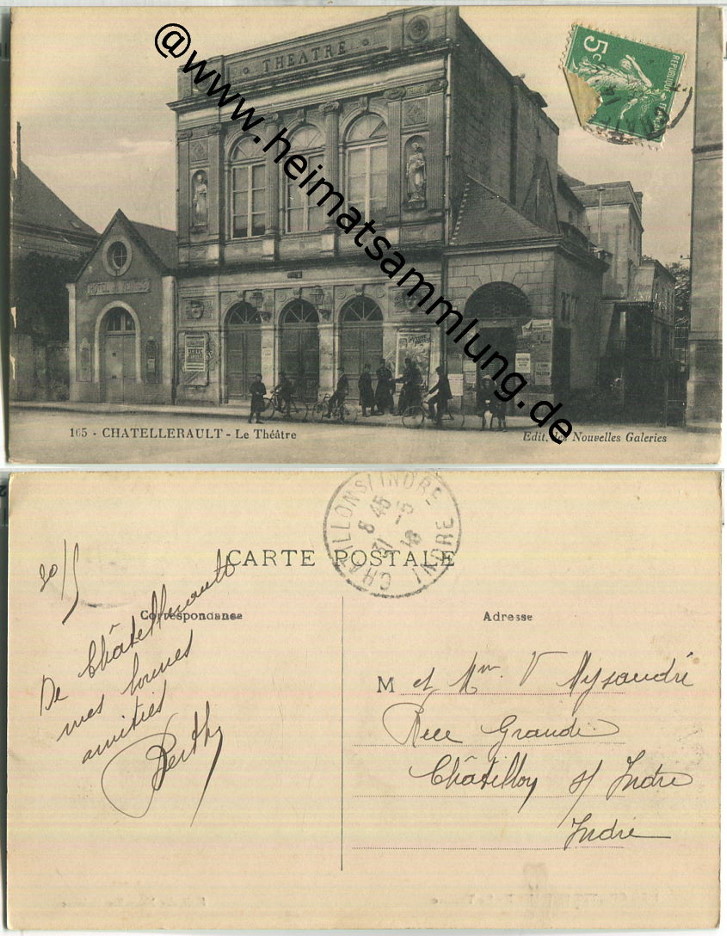 THEATRE
@www.heimatsammlung.de
5c
165 - CHATELLERAULT - Le Théâtre
Edit. des Nouvelles Galeries
CHATILLON S/INDRE
8 45
31 - 5
INDRE
CARTE POSTALE
Correspondance
Adresse
20/5
De Châtellerault
mes bonnes
amitiés
Berthe
M et Mme V
Rue Grande
Châtillon s/ Indre
Indre